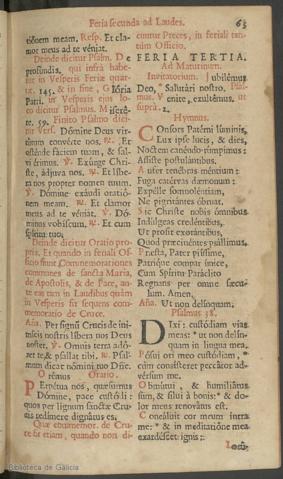 Feria secunda ad Laudes.
63
tiónem meam. Resp. Et cla-
mor meus ad te véniat.
Deinde dicitur Psalm. De
profundis, qui infra habe-
tur in Vesperis Feriæ quar-
tæ. 145. & in fine, Glória
Patri. in Vesperis ejus lo-
co dicitur Psalmus. Miseré-
re. 59. Finito Psalmo dici-
tur Vers. Dómine Deus vir-
tútum convérte nos. ℟. Et
osténde fáciem tuam, & sal-
vi érimus. ℣. Exúrge Chri-
ste, ádjuva nos. ℟. Et líbe-
ra nos propter nomen tuum.
℣. Dómine exáudi oratió-
nem meam. ℟. Et clamor
meus ad te véniat. ℣. Dó-
minus vobíscum. ℟. Et cum
spíritu tuo.
Deinde dicitur Oratio pro-
pria. Et quando in ferali Of-
ficio fiunt Commemorationes
communes de sancta Maria,
de Apostolis, & de Pace, an-
te eas tam in Laudibus quàm
in Vesperis fit sequens com-
memoratio de Cruce.
Aña. Per signũ Crucis de ini-
mícis nostris líbera nos Deus
noster. ℣. Omnis terra adó-
ret te, & psallat tibi. ℟. Psal-
mum dicat nómini tuo Dñe.
Orémus Oratio.
Perpétua nos, quæsumus
Dómine, pace custódi:
quos per lignum sanctæ Cru-
cis redímere dignátus es.
Quæ commemor. de Cru-
ce fit etiam, quando non di-
cuntur Preces, in feriali tan-
tùm Officio.
FERIA TERTIA.
Ad Matutinum.
Invitatorium. Jubilémus
Deo, * Salutári nostro. Psal-
mus. Veníte, exultémus. ut
supra. 2.
Hymnus.
Consors Patérni lúminis,
Lux ipse lucis, & dies,
Noctem canéndo rúmpimus:
Assíste postulántibus.
Aufer ténebras méntium:
Fuga catérvas dǽmonum:
Expélle somnoléntiam,
Ne pigritántes óbruat.
Sic Christe nobis ómnibus
Indúlgeas credéntibus,
Ut prosit exorántibus,
Quod præcinéntes psállimus.
Præsta, Pater piíssime,
Patríque compar únice,
Cum Spíritu Paráclito
Regnans per omne sæcu-
lum. Amen.
Aña. Ut non delínquam.
Psalmus 38.
Dixi: custódiam vias
meas: * ut non delín-
quam in lingua mea.
Pósui ori meo custódiam, *
cùm consísteret peccátor ad-
vérsùm me.
Obmútui, & humiliátus
sum, & sílui à bonis: * & do-
lor meus renovátus est.
Concáluit cor meum intra
me: * & in meditatióne mea
exardéscet ignis:
Locú-
Biblioteca de Galicia